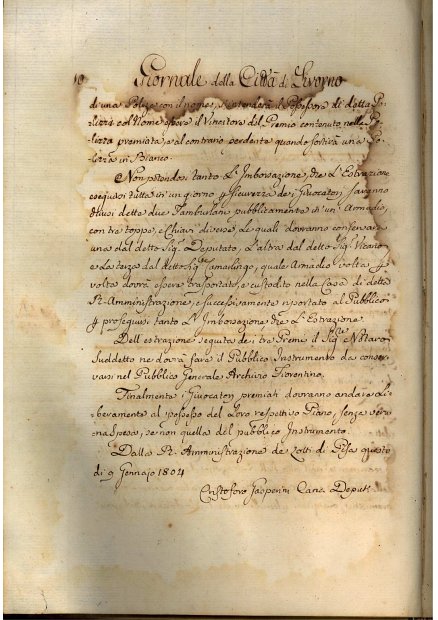 10 Giornale della Città di Livorno
di una Polizza con il nome, s'intenderà il Possessore di detta Po-
lizza col Nome essere il Vincitore del Premio contenuto nella Po-
lizza premiata, e al contrario perdente quando sortirà una Po-
lizza in Bianco.
Non potendosi tanto L'Imborsazione, che L'Estrazione
eseguirsi tutta in un giorno p sicurezza dei Giuocatori saranno
chiusi dette due Tamburlani pubblicamente in un Armadio,
con tre toppe, e Chiavi diverse, Le quali dovranno conservarsi
una dal detto Sig.e Deputato, L'altra dal detto Sig.e Vicario
e La terza dal detto Sig.e Camarlingo, quale Armadio volta p
volta dovrà essere trasportato, e custodito nella Casa di detta
R. Amministrazione, e successivamente riportato al Pubblico
p proseguirsi tanto L'Imborsazione che L'Estrazione.
Dell'estrazione seguita dei tre Premi il Sig.e Notaro
Suddetto ne dovrà fare il Pubblico Instrumento da conser-
varsi nel Pubblico Generale Archivio Fiorentino.
Finalmente i Giuocatori premiati dovranno andare Li-
beramente al possesso del Loro respettivo Piano, senza veru-
na Spesa, se non quella del pubblico Instrumento.
Dalla R. Amministrazione de Lotti di Pisa questo
di 9 Gennajo 1804
Cristoforo Gasperini Canc. Deput.